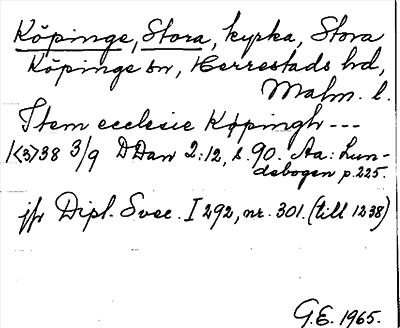 Köpinge, Stora, kyrka, Stora
Köpinge sn, Herrestads hd,
Malm. l.
Item ecclesie Køpingh ---
1<3>38 3/9 DDan 2:12, s. 90. Aa: Lun-
debogen p. 225.
jfr Dipl. Svec. I 292, nr. 301. (till 1238)
G.E. 1965.